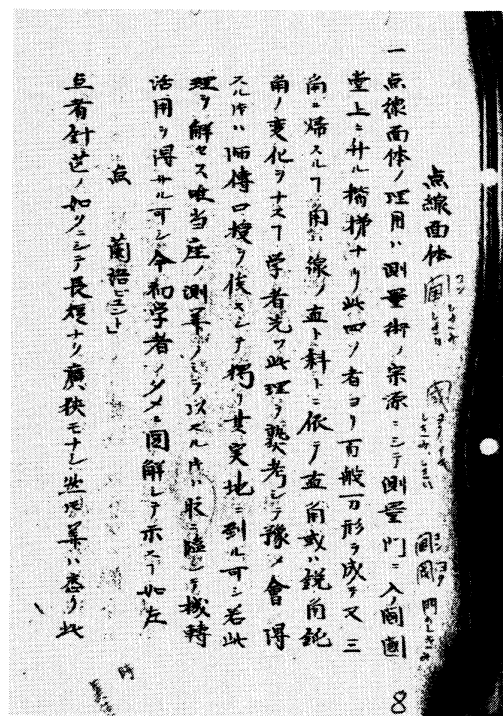 点線面体
一 点線面体ノ理用ハ測量術ノ宗源ニシテ測量門ニ入ノ閫閾
堂上ニ升ル楷梯ナリ此四ノ者ヨリ百般万形ヲ成ス又三
角ニ帰スルヿ角ハ線ノ直ト斜トニ依テ直角或ハ鋭角鈍
角ノ変化ヲナスヿ学者先ツ此理ヲ熟考シテ豫メ會得
スル片ハ師傳口授ヲ俟スシテ獨リ其実地ニ到ル可シ若此
理ヲ解セス唯当座ノ測算ノミヲ以スル片ハ取テ機轉
活用ヲ得サル可シ今初学者ノタメニ図解シテ示スヿ如左
点 蘭語
点者針芒ノ如クニシテ長短ナク廣狭モナシ然モ算ハ悉ク此
8